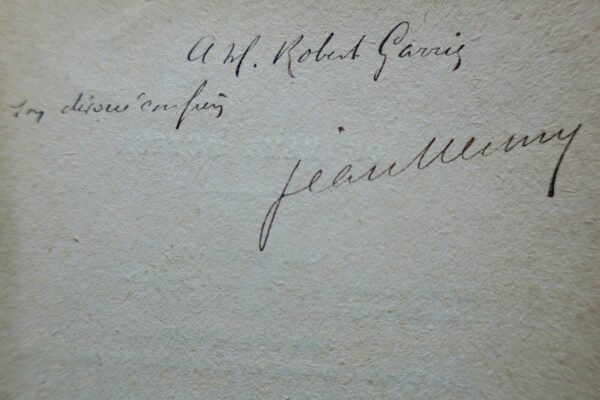 A M. Robert Garric
son dévoué confrère
Jean